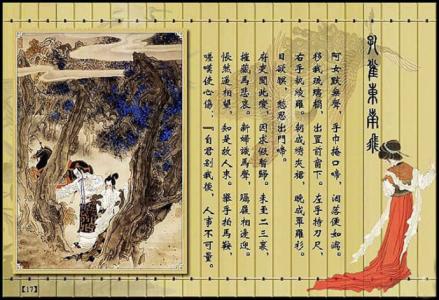 孔雀東南飛
阿女默無聲，手巾掩口啼，淚落便如瀉。
移我琉璃榻，出置前窗下。左手持刀尺，
右手執綾羅。朝成繡夾裙，晚成單羅衫。
日欲暝，愁思出門啼。
府吏聞此變，因求假暫歸。未至二三裏，
摧藏馬悲哀。新婦識馬聲，躡履相逢迎。
悵然遙相望，知是故人來。舉手拍馬鞍，
嗟嘆使心傷：『自君別我後，人事不可量。
【17】